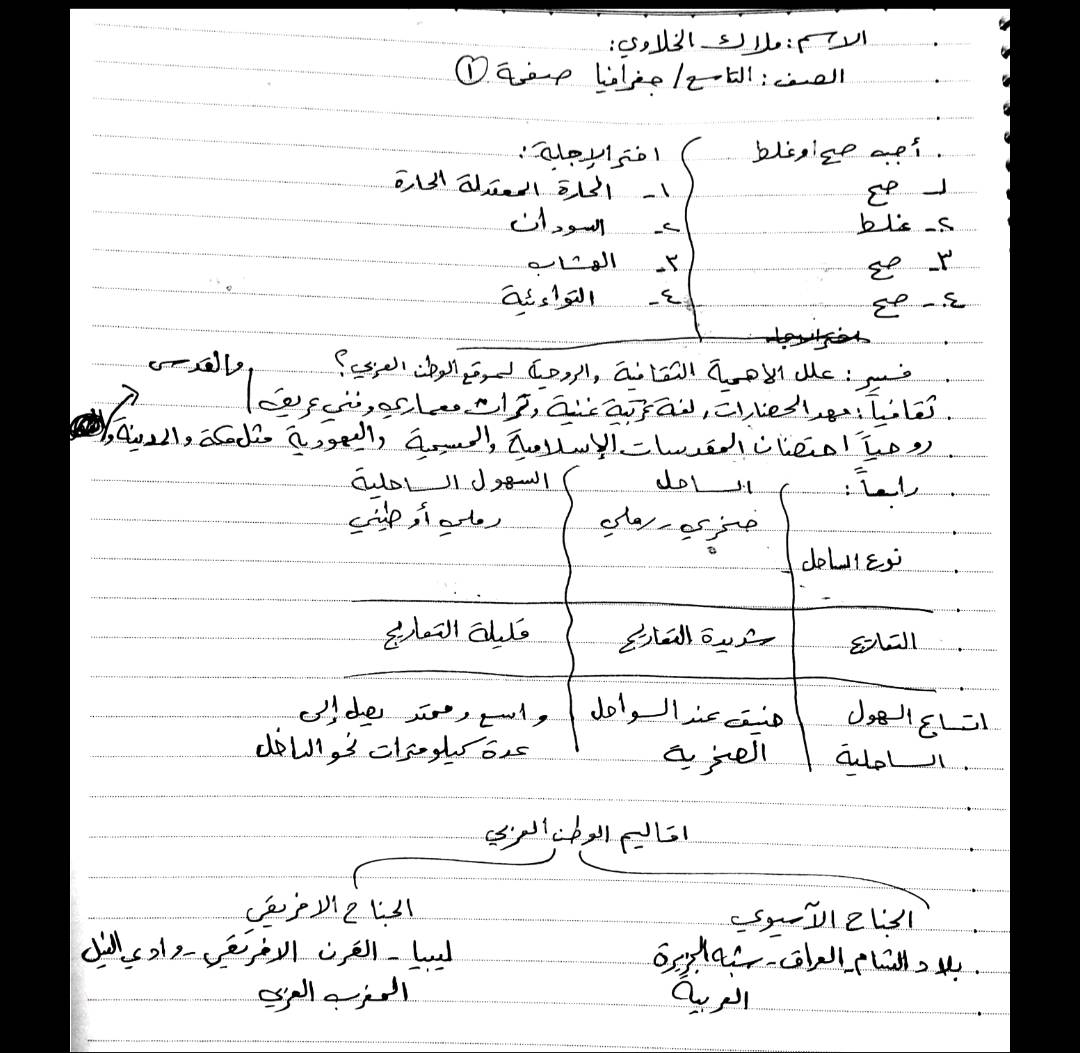 الاسم: ملاك الخلاوي:
الصف: التاسع / جغرافيا صفحة ①
أجب صح أو غلط
١- صح
٢- غلط
٣- صح
٤- صح
اختر الإجابة:
١- الحارة المعتدلة الحارة
٢- السودان
٣- الهضاب
٤-
فسير: علل الأهمية الثقافية والروحية لموقع الوطن العربي؟
ثقافياً: مهد الحضارات، لغة عربية غنية وتراث معماري وفني عريق
روحياً احتضان المقدسات الإسلامية والمسيحية واليهودية مثل مكة والمدينة والقدس
رابعاً: الساحل السهول الساحلية
نوع الساحل صخري - رملي رملي أو طيني
التعاريج شديدة التعاريج قليلة التعاريج
اتساع السهول ضيق عند السواحل واسع وممتد يصل إلى
الساحلية الصخرية عدة كيلومترات نحو الداخل
اقاليم الوطن العربي
الجناح الآسيوي الجناح الافريقي
بلاد الشام - العراق - شبه الجزيرة ليبيا - القرن الافريقي - وادي النيل
العربية المغرب العربي